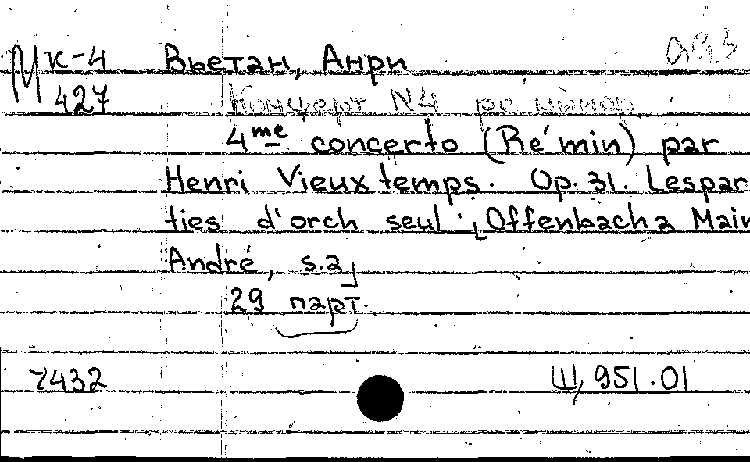 Мк-4 Вьетан, Анри
427 Концерт N4 ре минор
4me concerto (Ré min) par
Henri Vieuxtemps. Op. 31. Les par
ties d'orch seul. [Offenbach a Main
André, s.a]
29 парт.
7432 Щ 951.01